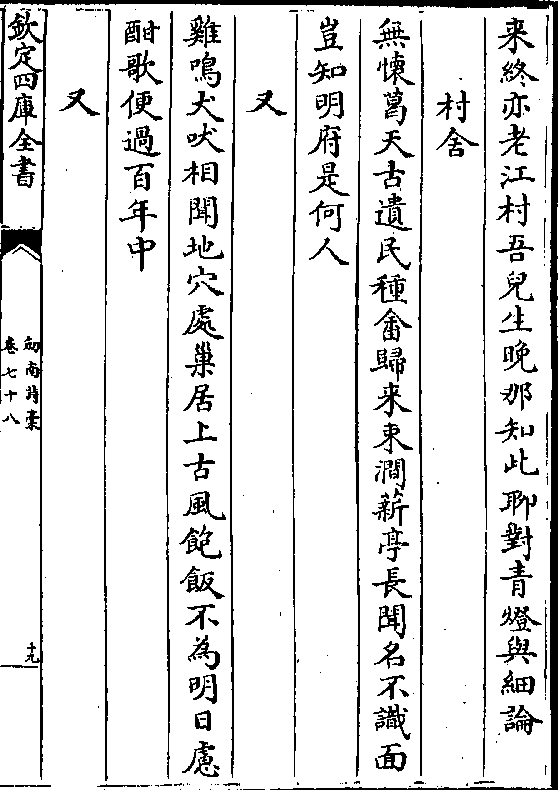 来終亦老江村吾兒生晚那知此聊對青燈與細論
村舍
無懷葛天古遺民種畬歸来束澗薪亭長聞名不識面
豈知明府是何人
又
雞鳴犬吠相聞地穴處巢居上古風飽飯不為明日慮
酣歌便過百年中
又
欽定四庫全書
劔南詩稾
卷七十八
十九